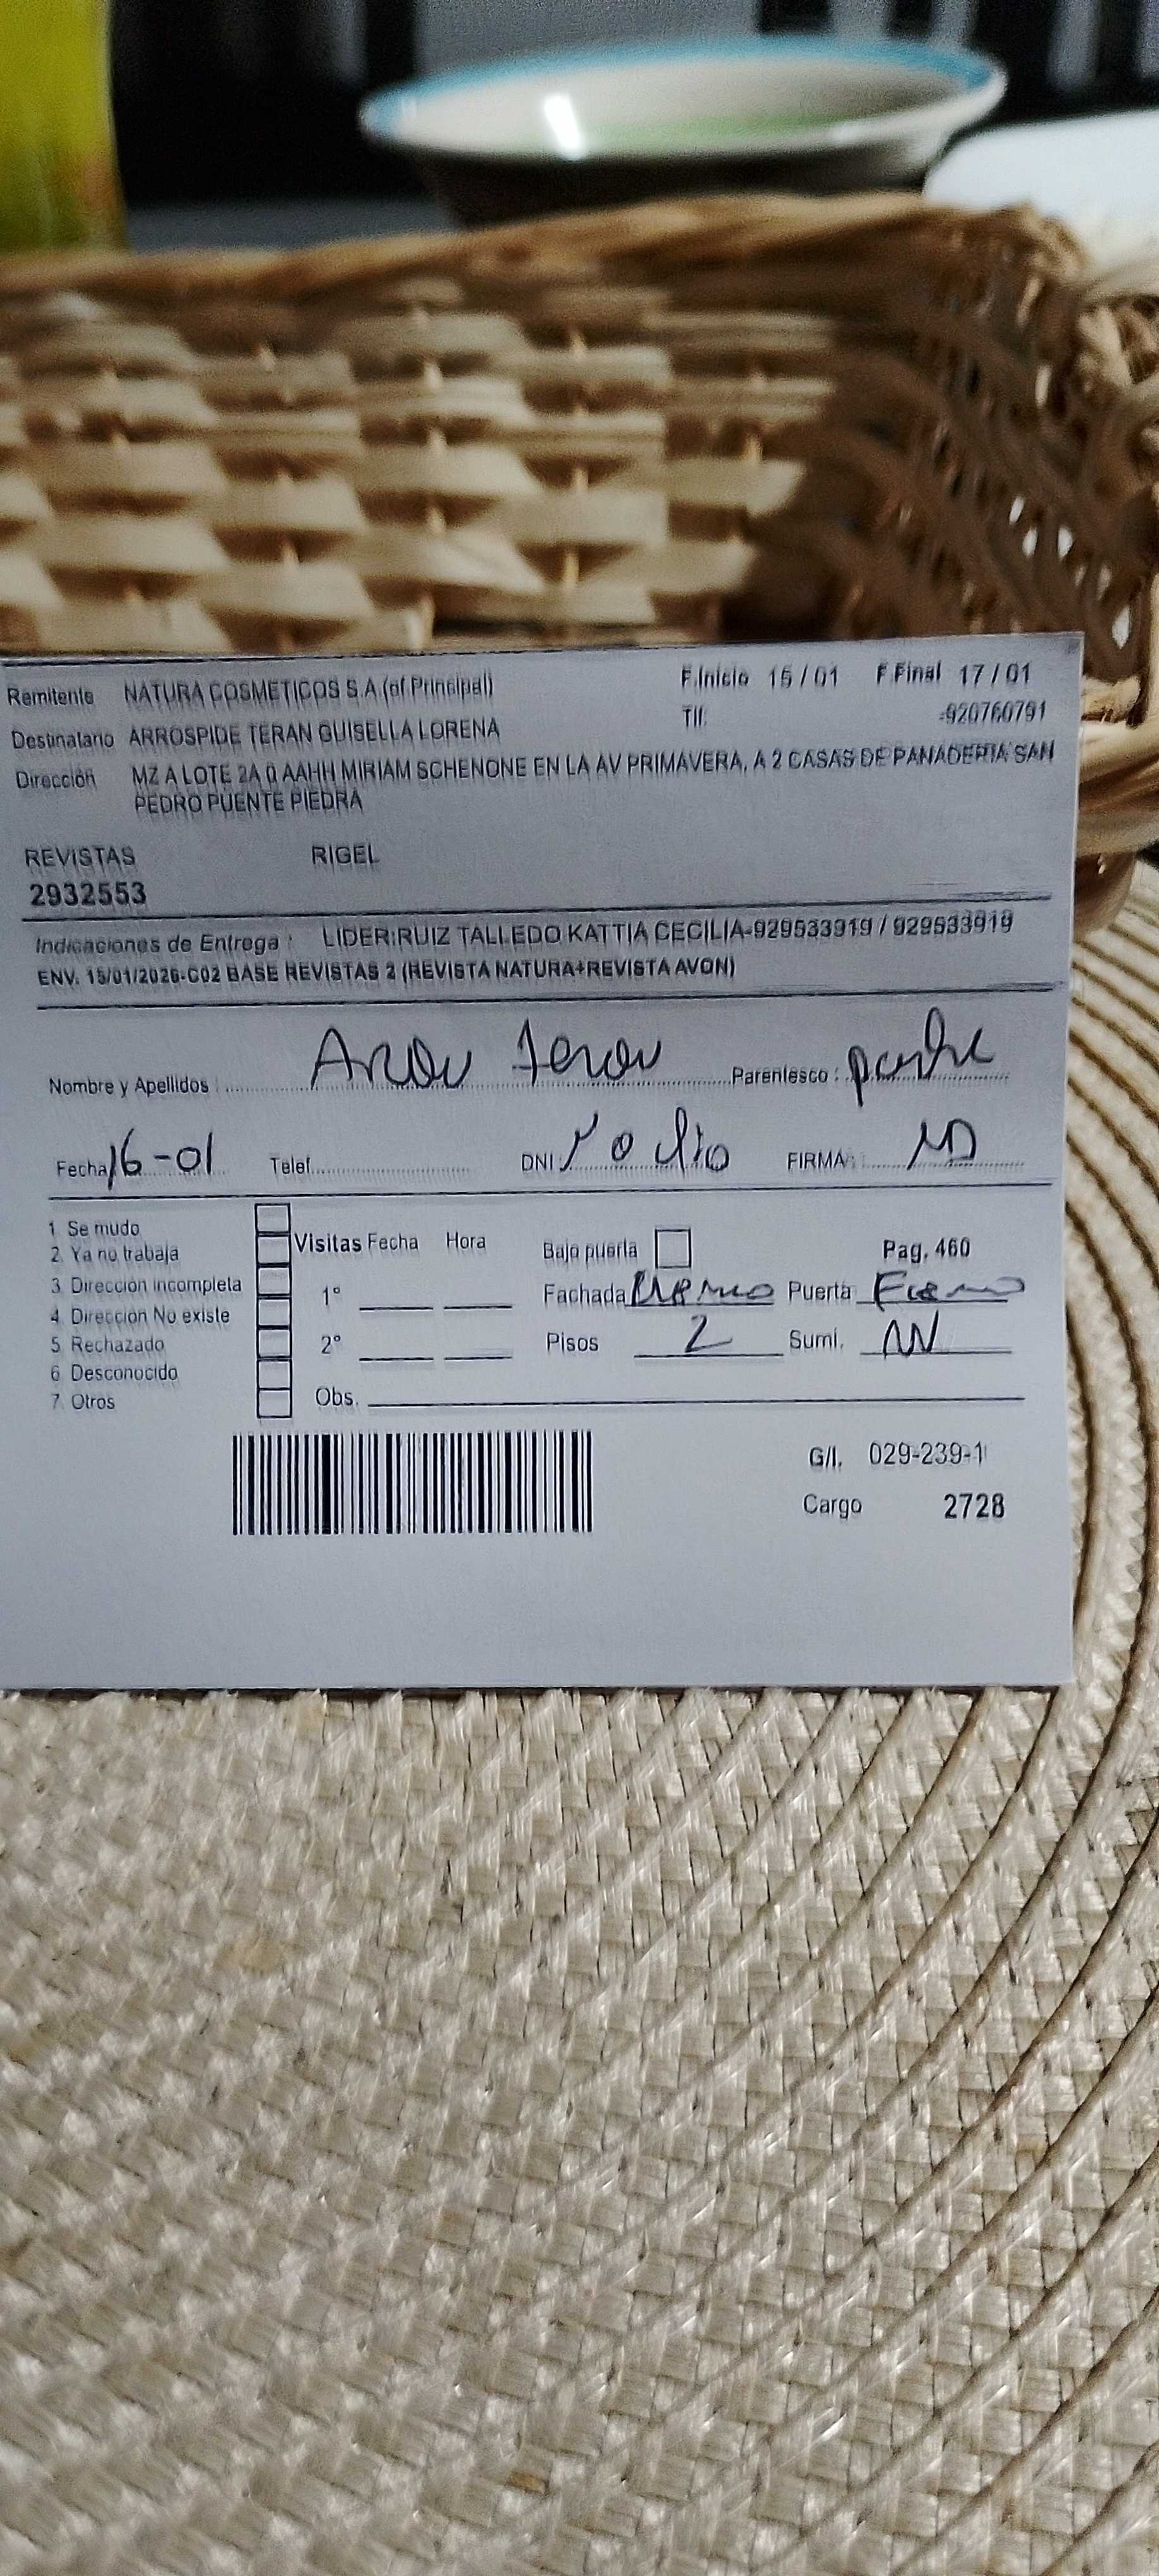 Remitente NATURA COSMETICOS S.A (of Principal) F.Inicio 15 / 01 F.Final 17 / 01
Destinatario ARROSPIDE TERAN GUISELLA LORENA Tlf: -920760791
Dirección MZ A LOTE 2A 0 AAHH MIRIAM SCHENONE EN LA AV PRIMAVERA, A 2 CASAS DE PANADERIA SAN
PEDRO PUENTE PIEDRA
REVISTAS RIGEL
2932553
Indicaciones de Entrega : LIDER:RUIZ TALLEDO KATTIA CECILIA-929533919 / 929533919
ENV. 15/01/2026-C02 BASE REVISTAS 2 (REVISTA NATURA+REVISTA AVON)
Nombre y Apellidos : Teran Parentesco : padre
Fecha 16-01 Telef. DNI: FIRMA:
1 Se mudo
2. Ya no trabaja Visitas Fecha Hora Bajo puerta Pag. 460
3. Dirección incompleta 1° Fachada Puerta
4 Dirección No existe
5 Rechazado 2° Pisos 2 Sumi.
6 Desconocido
7. Otros Obs.
G/I. 029-239-1
Cargo 2728